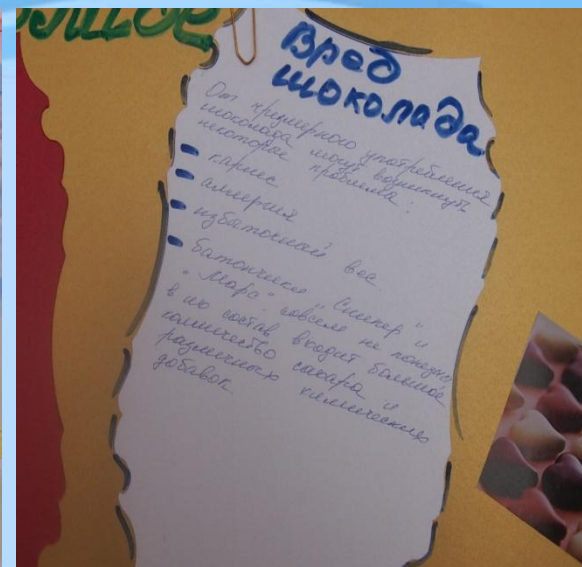 Вред
шоколада
От чрезмерного употребления
шоколада могут возникнуть
некоторые проблемы:
- кариес
- аллергия
- избыточный вес.
- батончики "Сникер" и
"Марс" совсем не полезны
в их состав входит большое
количество сахара и
различных химических
добавок.